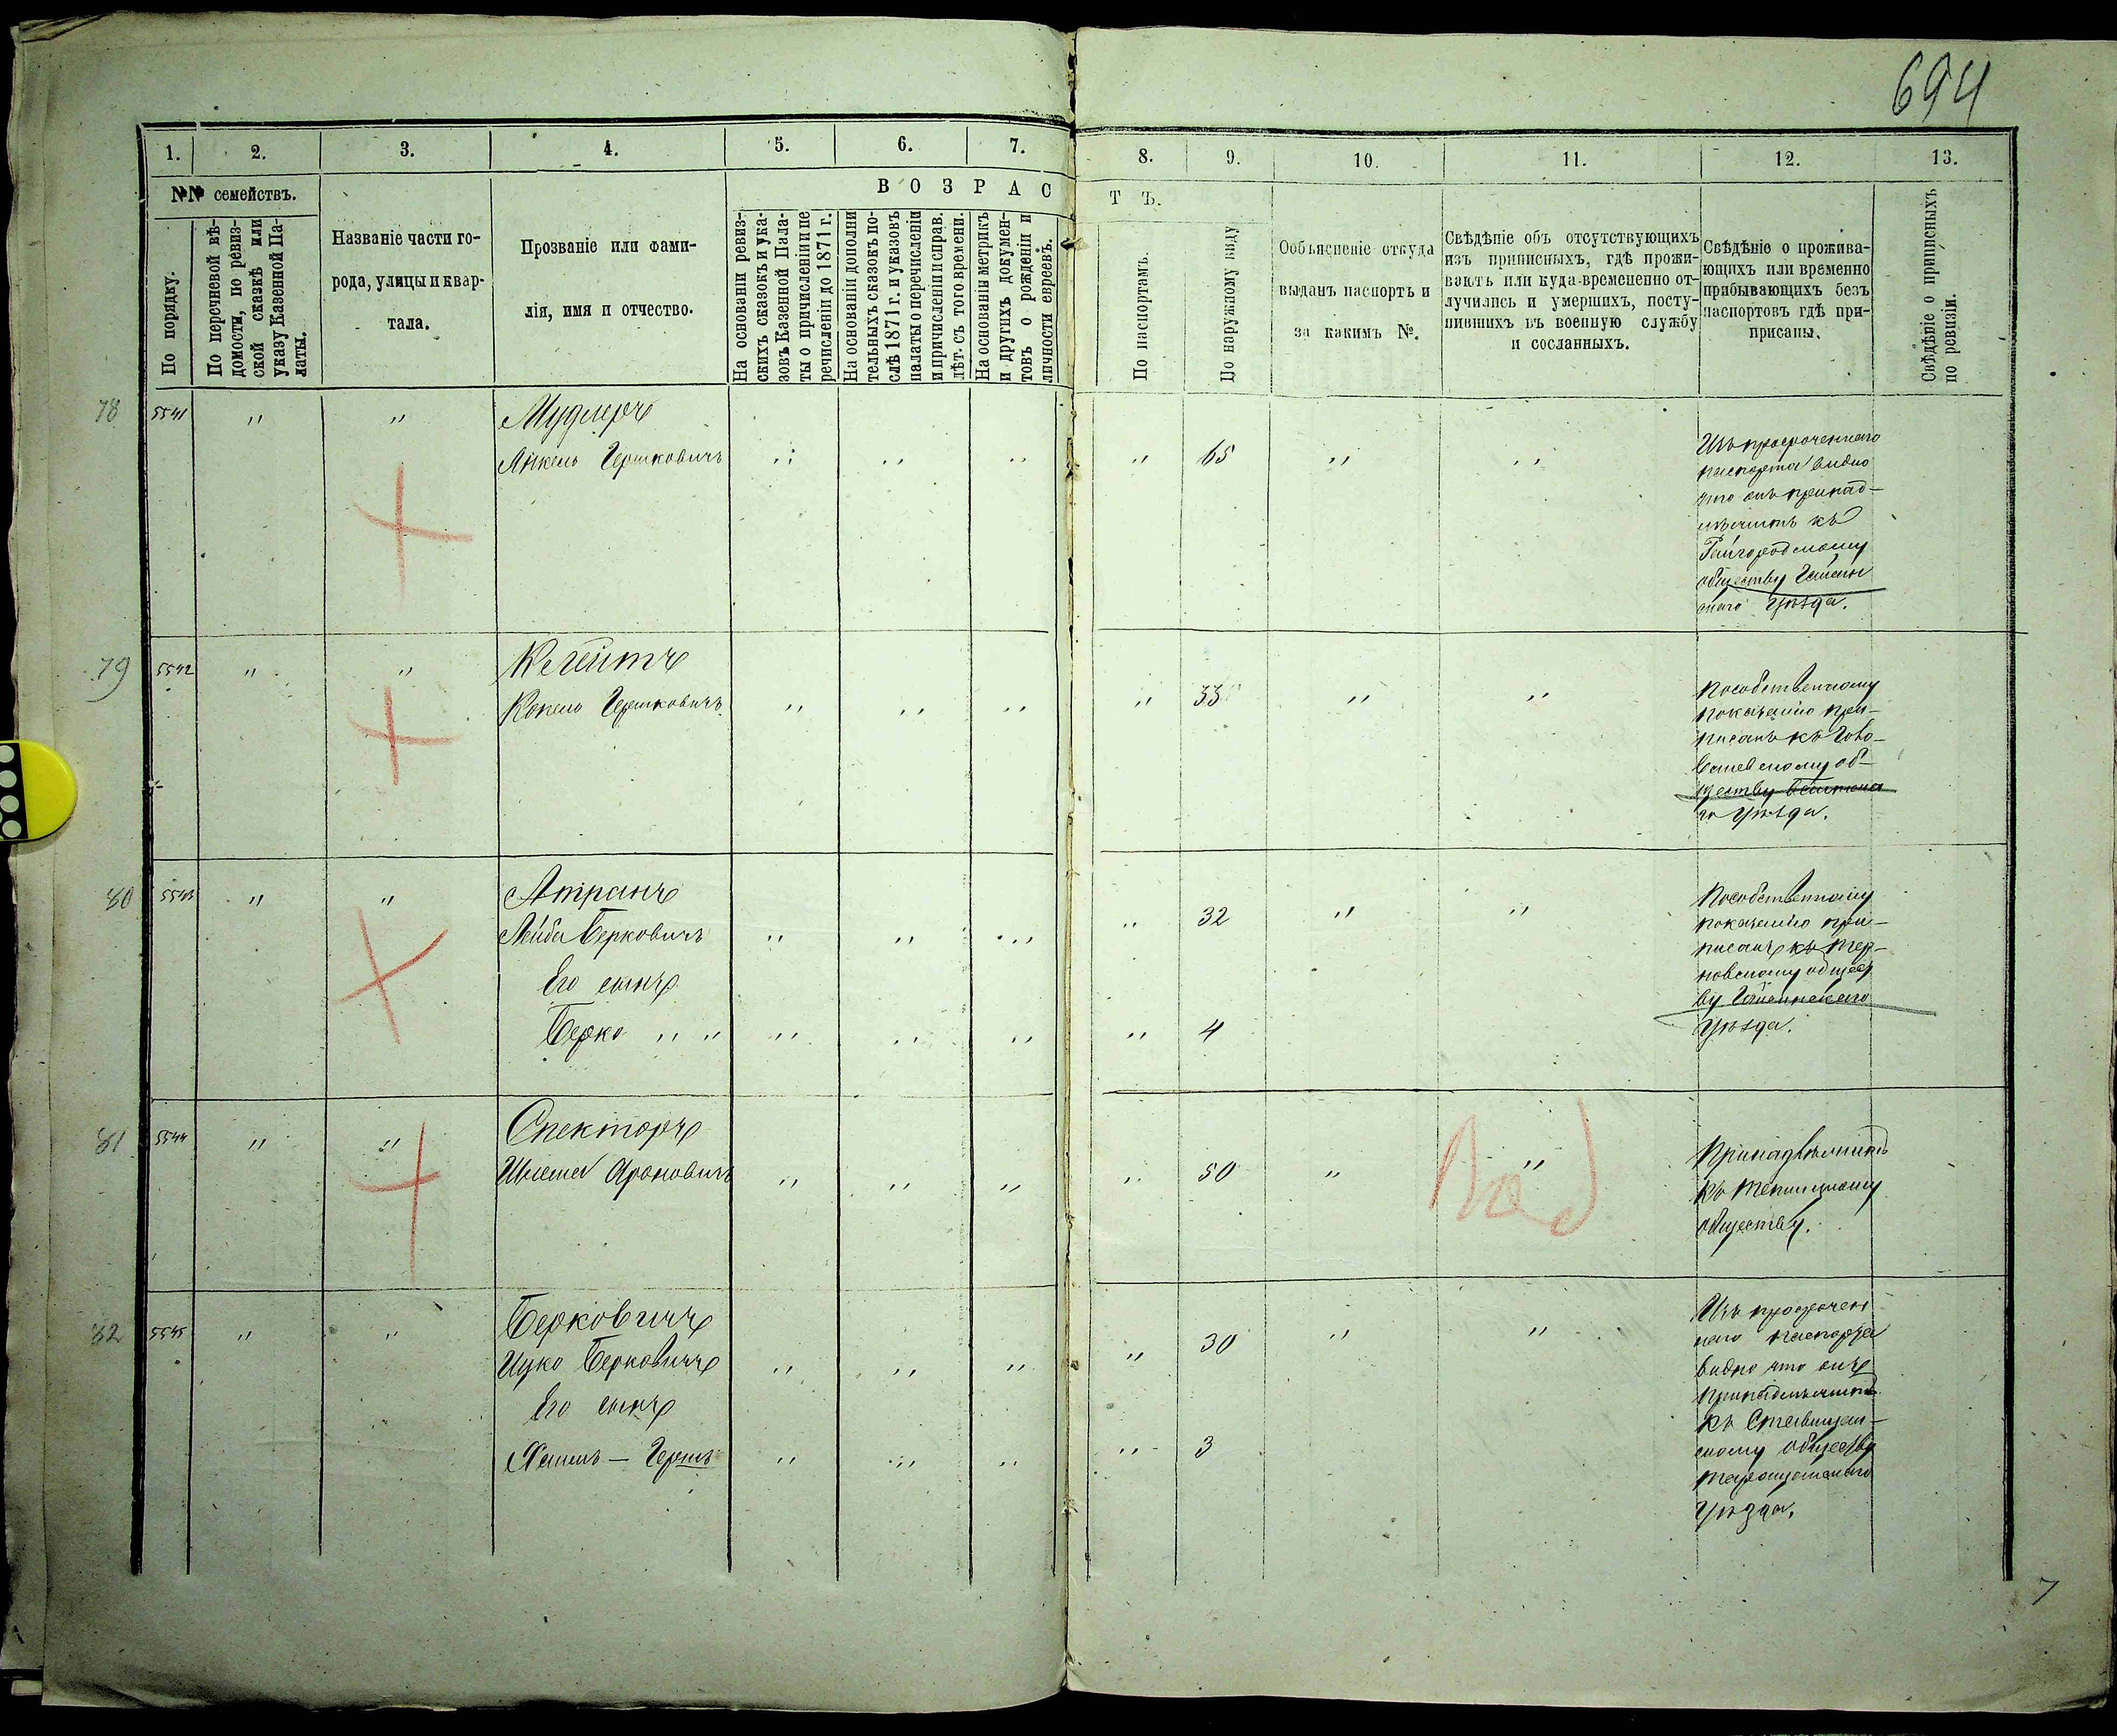 694
1. 2. 3. 4. 5. 6. 7. 8. 9. 10. 11. 12. 13.
№№ семействъ.
По порядку.
По перечневой вѣ-
домости, по ревиз-
ской сказкѣ или
указу Казенной Па-
латы.
Названіе части го-
рода, улицы и квар-
тала.
Прозваніе или фами-
лія, имя и отчество.
ВОЗРАСТЪ.
На основаніи ревиз-
скихъ сказокъ и ука-
зовъ Казенной Пала-
ты о причисленіи и пе
речисленіи до 1871 г.
На основаніи дополни
тельныхъ сказокъ по-
слѣ 1871 г. и указовъ
палаты о перечисленіи
и причисленіи и справ.
лѣт. съ того времени.
На основаніи метрикъ
и другихъ докумен-
товъ о рожденіи и
личности евреевъ.
По паспортамъ.
По наружному виду
Объясненіе откуда
выданъ паспортъ и
за какимъ №.
Свѣдѣніе объ отсутствующихъ
изъ приписныхъ, гдѣ прожи-
ваютъ или куда временно от-
лучились и умершихъ, посту-
пившихъ въ военную службу
и сосланныхъ.
Свѣдѣніе о прожива-
ющихъ или временно
прибывающихъ безъ
паспортовъ гдѣ при-
присаны.
Свѣдѣніе о приписныхъ
по ревизіи.
78 5541 " " Мудлеръ
Янкель Гершковичъ " " " " 65 " "
Изъ просроченнаго
паспорта видно
что онъ принад-
лежитъ къ
Райгородскому
обществу Гайсин
скаго уѣзда.
79 5542 " "
Копель Гершковичъ " " " " 33 " "
По собственному
показанію при-
писанъ къ
об-
ществу
го уѣзда.
80 5543 " " Атранъ
Лейба Берковичъ " " " " 32 " "
Его сынъ
Берко " " " " " " 4
По собственному
показанію при-
писанъ къ Тер-
новскому общест
ву Гайсинскаго
уѣзда.
81 5544 " " Спекторъ
Ароновичъ " " " " 50 " "
Принадлежитъ
къ
обществу.
82 5545 " " Берковичъ
Ицко Берковичъ " " " " 30 " "
Его сынъ
Гершъ " " " " 3
Изъ просрочен
наго паспорта
видно что онъ
принадлежитъ
къ Ставищан-
скому обществу
Таращанскаго
уѣзда.
7